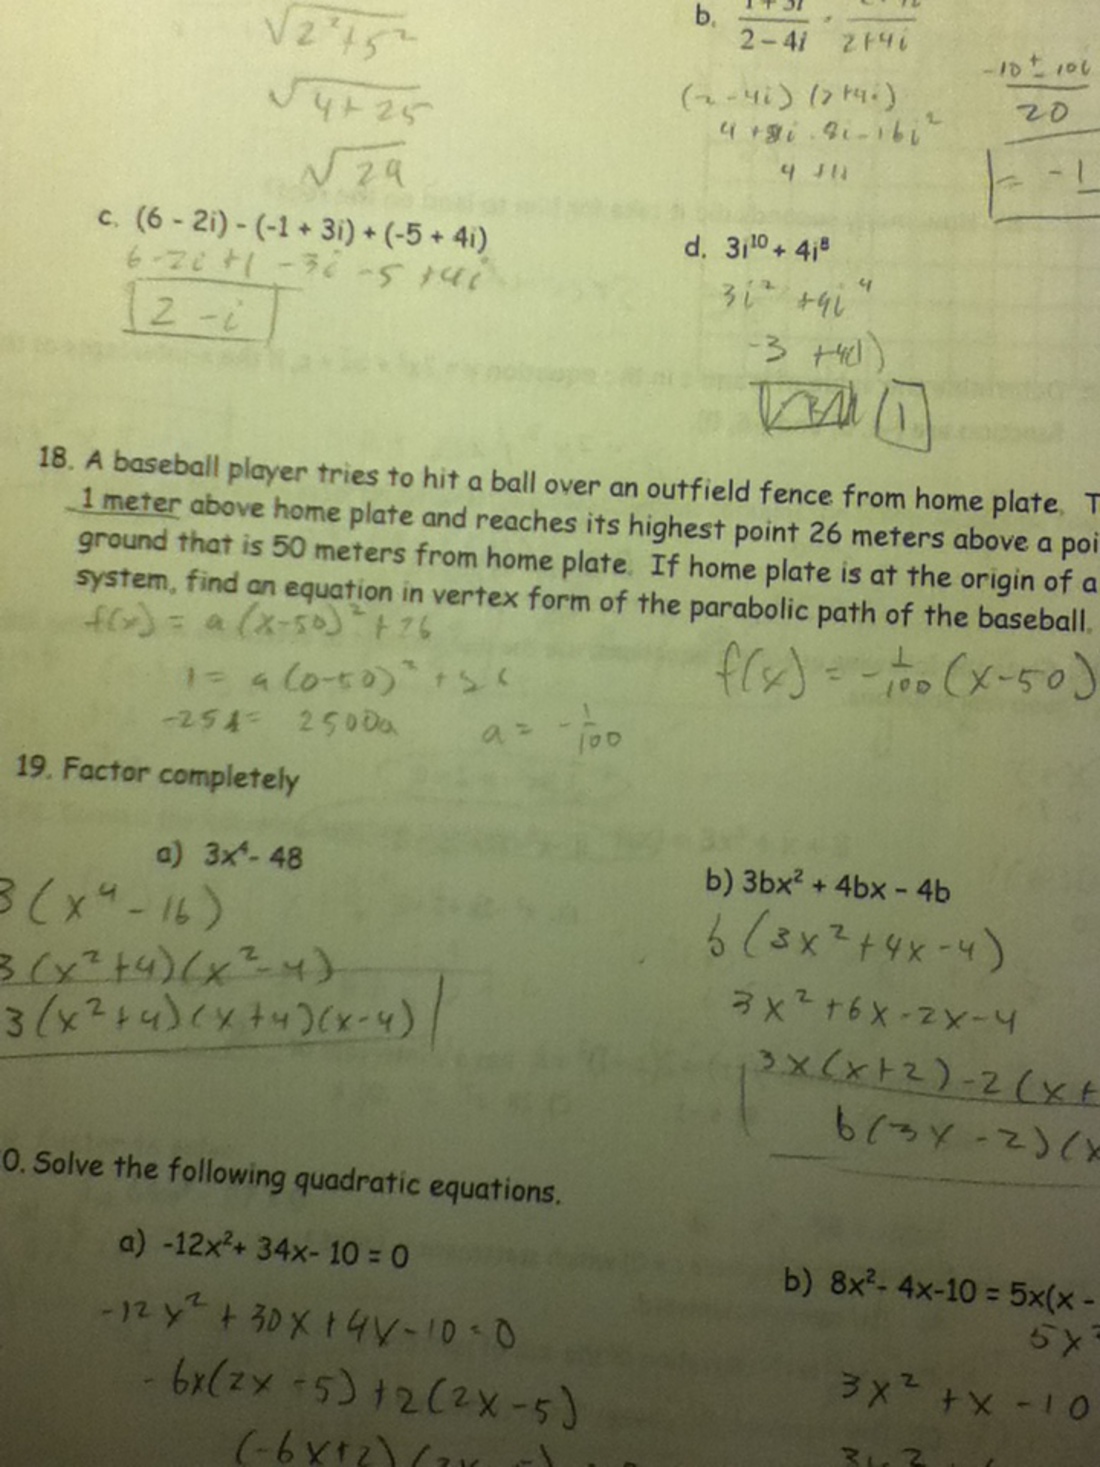 √2²+5²
√4+25
√29
b. 1+3i / 2-4i · 2+4i
(2-4i) (2+4i)
4+8i-8i-16i²
-10±10i / 20
= -1
c. (6 - 2i) - (-1 + 3i) + (-5 + 4i)
6-2i+1-3i-5+4i
2-i
d. 3i¹⁰ + 4i⁸
3i² +4i⁴
-3 +4(1)
1
18. A baseball player tries to hit a ball over an outfield fence from home plate. T
1 meter above home plate and reaches its highest point 26 meters above a poi
ground that is 50 meters from home plate. If home plate is at the origin of a
system, find an equation in vertex form of the parabolic path of the baseball.
f(x) = a(x-50)²+26
1 = a(0-50)²+26
-25 = 2500a a = -1/100
f(x) = -1/100 (x-50)
19. Factor completely
a) 3x⁴- 48
3(x⁴-16)
3(x²+4)(x²-4)
3(x²+4)(x+4)(x-4)
b) 3bx² + 4bx - 4b
b(3x²+4x-4)
3x²+6x-2x-4
3x(x+2)-2(x+
b(3x-2)(x
0. Solve the following quadratic equations.
a) -12x²+ 34x- 10 = 0
-12x²+30x+4x-10=0
-6x(2x-5)+2(2x-5)
(-6x+2)
b) 8x²- 4x-10 = 5x(x -
5x²
3x² +x -10